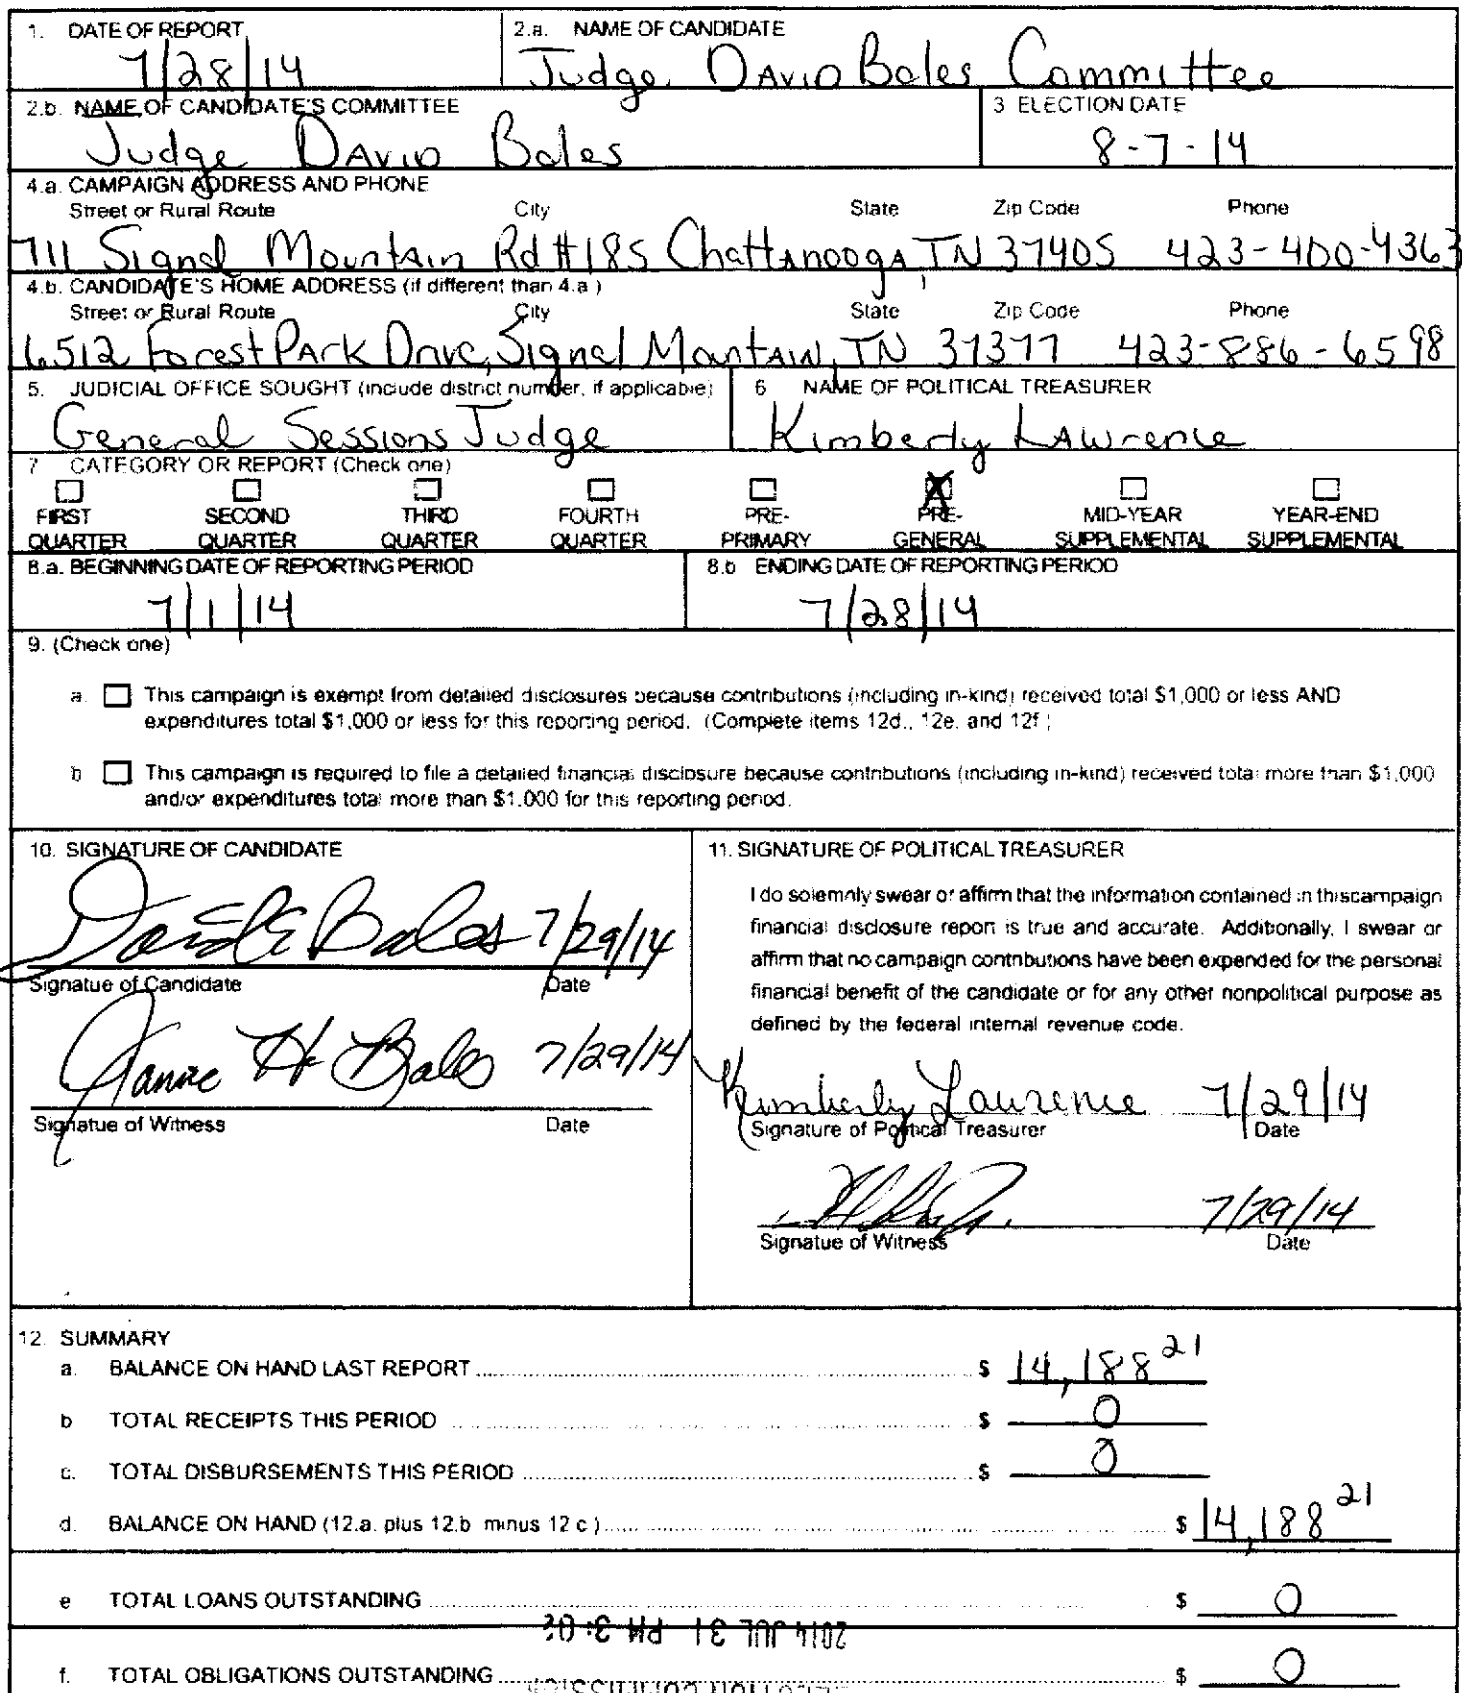 1. DATE OF REPORT
7/28/14
2.a. NAME OF CANDIDATE
Judge David Bales Committee
2.b. NAME OF CANDIDATE'S COMMITTEE
Judge David Bales
3 ELECTION DATE
8-7-14
4.a. CAMPAIGN ADDRESS AND PHONE
Street or Rural Route City State Zip Code Phone
711 Signal Mountain Rd #185 Chattanooga, TN 37405 423-400-4363
4.b. CANDIDATE'S HOME ADDRESS (if different than 4.a)
Street or Rural Route City State Zip Code Phone
6512 Forest Park Drive, Signal Mountain, TN 37377 423-886-6598
5. JUDICIAL OFFICE SOUGHT (include district number, if applicable)
General Sessions Judge
6 NAME OF POLITICAL TREASURER
Kimberly Lawrence
7 CATEGORY OR REPORT (Check one)
FIRST QUARTER
SECOND QUARTER
THIRD QUARTER
FOURTH QUARTER
PRE-PRIMARY
X
PRE-GENERAL
MID-YEAR SUPPLEMENTAL
YEAR-END SUPPLEMENTAL
8.a. BEGINNING DATE OF REPORTING PERIOD
7/1/14
8.b ENDING DATE OF REPORTING PERIOD
7/28/14
9. (Check one)
a. This campaign is exempt from detailed disclosures because contributions (including in-kind) received total $1,000 or less AND
expenditures total $1,000 or less for this reporting period. (Complete items 12d., 12e. and 12f.)
b This campaign is required to file a detailed financial disclosure because contributions (including in-kind) received total more than $1,000
and/or expenditures total more than $1,000 for this reporting period.
10. SIGNATURE OF CANDIDATE
David E Bales 7/29/14
Signatue of Candidate Date
Janne H Bales 7/29/14
Signatue of Witness Date
11. SIGNATURE OF POLITICAL TREASURER
I do solemnly swear or affirm that the information contained in thiscampaign
financial disclosure report is true and accurate. Additionally, I swear or
affirm that no campaign contributions have been expended for the personal
financial benefit of the candidate or for any other nonpolitical purpose as
defined by the federal internal revenue code.
Kimberly Lawrence 7/29/14
Signature of Political Treasurer Date
7/29/14
Signatue of Witness Date
12. SUMMARY
a. BALANCE ON HAND LAST REPORT $ 14,188 21
b TOTAL RECEIPTS THIS PERIOD $ 0
c. TOTAL DISBURSEMENTS THIS PERIOD $ 0
d. BALANCE ON HAND (12.a. plus 12.b minus 12 c) $ 14,188 21
e TOTAL LOANS OUTSTANDING $ 0
2014 JUL 31 PM 3:02
f. TOTAL OBLIGATIONS OUTSTANDING $ 0